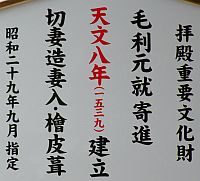 拝殿重要文化財
毛利元就寄進
天文八年(一五三九)建立
切妻造妻入・檜皮葺
昭和二十九年九月指定